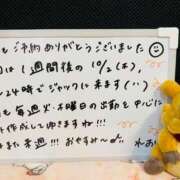 もご予約ありがとうございました
は1週間後の10/2(木)、
24時でジャックに来ます(^^)
も毎週火・木曜日の出勤を中心に
作成してゆきますね!!
また来週!!! おやすみー
れあ